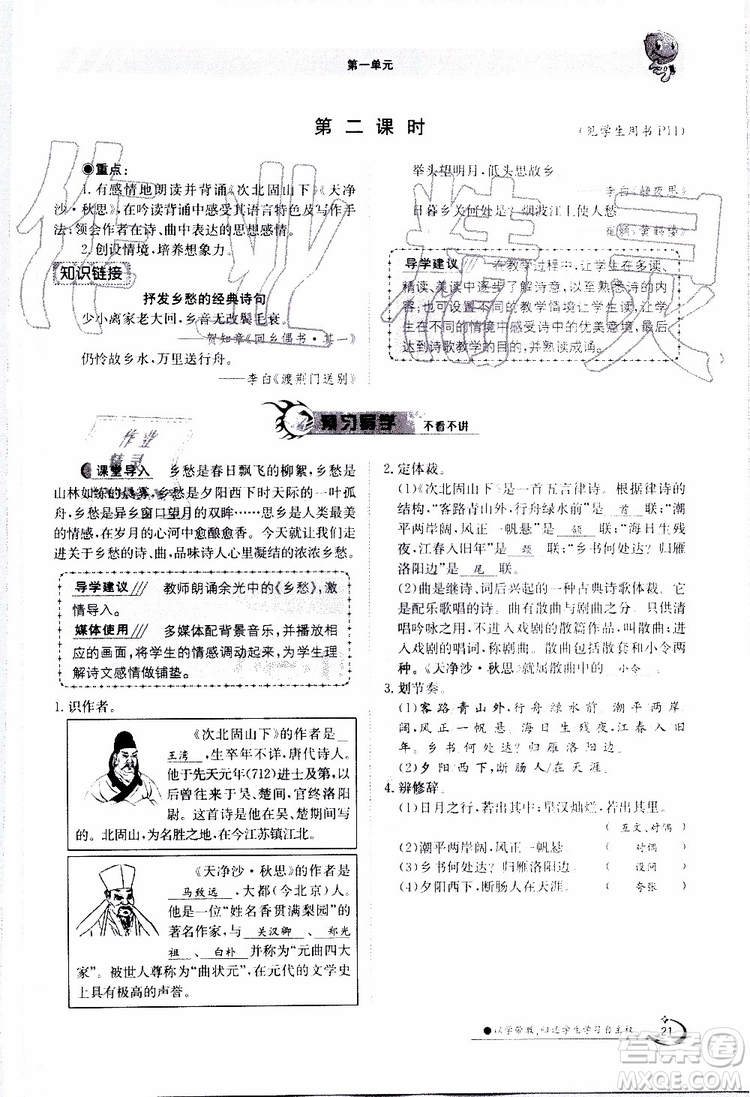 第一单元
第二课时
(见学生用书P11)
●重点:
1. 有感情地朗读并背诵《次北固山下》《天净
沙·秋思》,在吟读背诵中感受其语言特色及写作手
法,领会作者在诗、曲中表达的思想感情。
2. 创设情境,培养想象力。
知识链接
抒发乡愁的经典诗句
少小离家老大回,乡音无改鬓毛衰。
——贺知章《回乡偶书·其一》
仍怜故乡水,万里送行舟。
——李白《渡荆门送别》
举头望明月,低头思故乡
李白《静夜思》
日暮乡关何处是?烟波江上使人愁
崔颢《黄鹤楼》
导学建议 在教学过程中,让学生在多读、
精读、美读中逐步了解诗意,让学生熟悉诗的内
容,也可设置不同的教学情境让学生读,让学
生在不同的情境中感受诗中的优美意境,以
达到诗歌教学的目的,并熟读成诵。
预习导学 不看不讲
课堂导入 乡愁是春日飘飞的柳絮,乡愁是
山林如练的清泉,乡愁是夕阳西下时天际的一叶孤
舟,乡愁是异乡窗口望月的双眸……思乡是人类最美
的情感,在岁月的心河中荡漾。今天就让我们一起走
进关于乡愁的诗、曲,品味诗人心里凝结的浓浓乡愁。
导学建议 教师朗诵余光中的《乡愁》,激
情导入。
媒体使用 多媒体配背景音乐,并展示相
应的画面,将学生的情感调动起来,为学生理
解诗文感情做铺垫。
1. 识作者。
《次北固山下》的作者是
王湾,生卒年不详,唐代诗人。
他于先天元年(712)进士及第,
曾往来于吴、楚间,官终洛阳
尉。这首诗是他客居江南时
的作品。北固山,为名胜之地,在今江苏镇江北。
《天净沙·秋思》的作者是
马致远,大都(今北京)人。
他是一位“姓名香贯满梨园”的
著名作家,与关汉卿、郑光
祖、白朴并称为“元曲四大
家”。被世人尊称为“曲状元”,在元代的文学史
上具有极高的声誉。
2. 定体裁。
(1)《次北固山下》是一首五言律诗。根据律诗的
结构,“客路青山外,行舟绿水前”是首联;“潮
平两岸阔,风正一帆悬”是颔联;“海日生残
夜,江春入旧年”是颈联;“乡书何处达?归雁
洛阳边”是尾联。
(2)曲是继诗、词后兴起的一种古典诗歌体裁,
配乐歌唱的诗。曲有散曲与剧曲之分。散曲只供清
唱吟咏之用,不插入戏剧的散篇作品,而剧曲则
是戏剧。散曲又可分为套曲(套数)和小令两
种。《天净沙·秋思》就属于散曲中的小令。
3. 划节奏。
(1)客路青山外,行舟绿水前 潮平两岸
阔,风正一帆悬 海日生残夜,江春入旧
年。乡书何处达?归雁洛阳边。
(2)夕阳西下,断肠人在天涯
4. 辩修辞。
(1)日月之行,若出其中;星汉灿烂,若出其里。
(互文、对偶)
(2)潮平两岸阔,风正一帆悬 (对偶)
(3)乡书何处达?归雁洛阳边。 (设问)
(4)夕阳西下,断肠人在天涯。 (夸张)
●以学带教,归还学生学习自主权
21
作业精灵
作业
精灵
答案圈
MXQE.COM